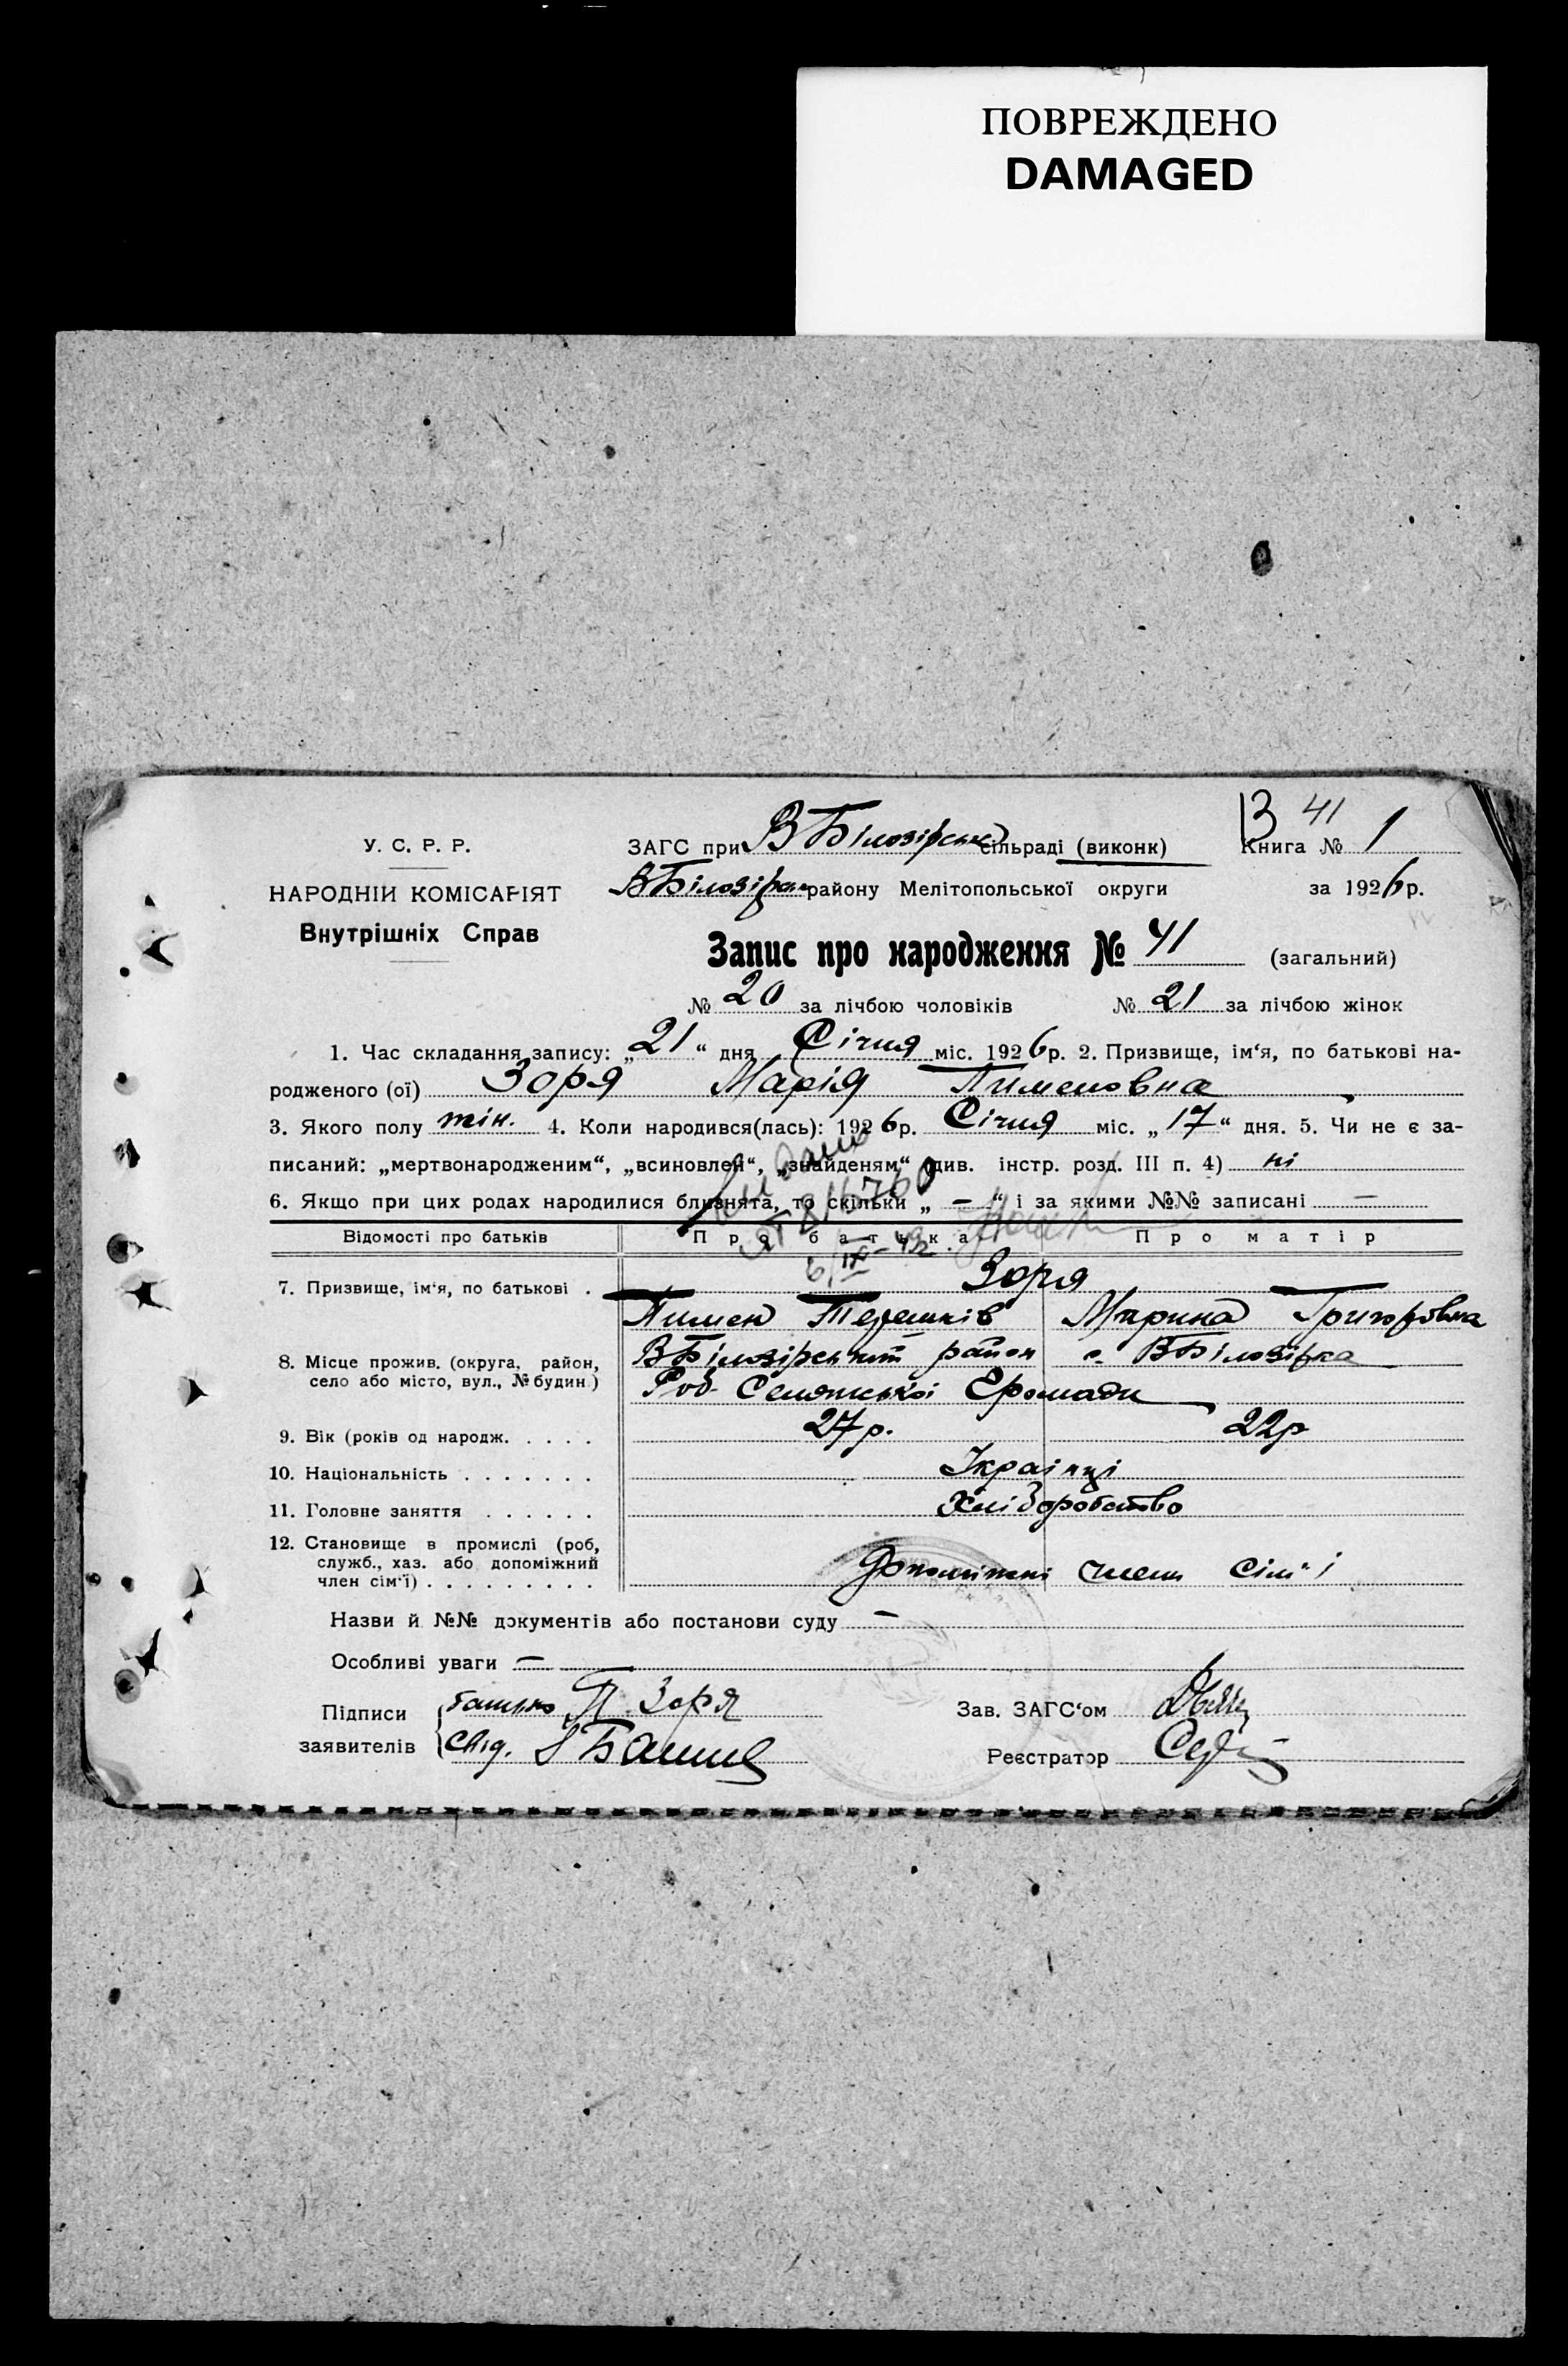 ПОВРЕЖДЕНО
DAMAGED
В 41
У. С. Р. Р.
ЗАГС при ВБілозірськ сільраді (виконк)
Книга № 1
НАРОДНІЙ КОМІСАРІЯТ
ВБілозірськ району Мелітопольської округи
за 1926 р.
Внутрішніх Справ
Запис про народження № 41 (загальний)
№ 20 за лічбою чоловіків № 21 за лічбою жінок
1. Час складання запису: „21“ дня Січня міс. 1926 р. 2. Призвище, ім'я, по батькові на-
родженого (ої) Зоря Марія Пименовна
3. Якого полу жін. 4. Коли народився(лась): 1926 р. Січня міс. „17“ дня. 5. Чи не є за-
писаний: „мертвонародженим“, „всиновлен“, „знайденям“ (див. інстр. розд. III п. 4) ні
6. Якщо при цих родах народилися близнята, то скільки „—“ і за якими №№ записані —
Відомості про батьків
Про батька
Про матір
7. Призвище, ім'я, по батькові .
Зоря
Пимен Терешків
Марина Григоровна
8. Місце прожив. (округа, район,
село або місто, вул., № будин.)
ВБілозірський район с. ВБілозірка
Громади
9. Вік (років од народж. . . . .
27 р.
22 р
10. Національність . . . . . . .
Українці
11. Головне заняття . . . . . .
Хліборобство
12. Становище в промислі (роб,
служб., хаз. або допоміжний
член сім'ї) . . . . . . . . .
Допоміжні члени сім'ї
Назви й №№ документів або постанови суду —
Особливі уваги —
Підписи
заявителів
батько П. Зоря
Свід.
Зав. ЗАГС'ом
Реєстратор